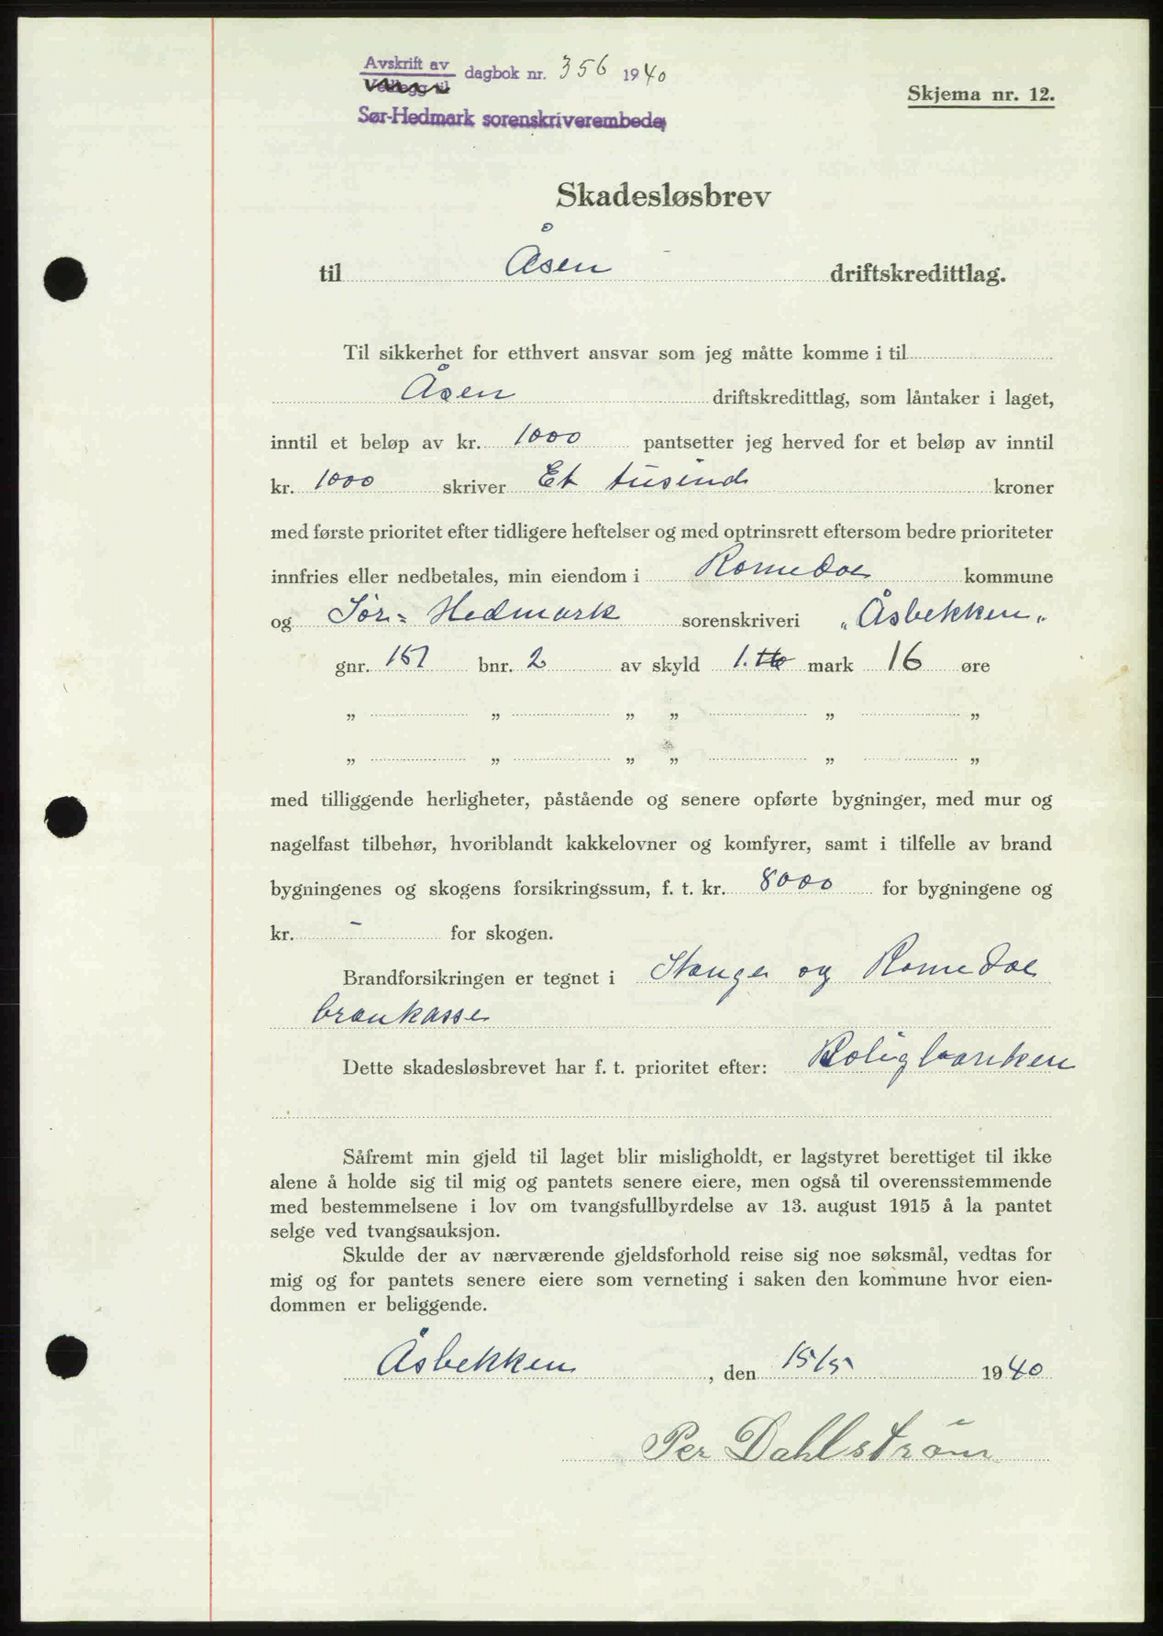 Avskrift av
Vedlegg til dagbok nr. 356 1940
Sør-Hedmark sorenskriverembede
Skjema nr. 12.
Skadesløsbrev
til Åsen driftskredittlag.
Til sikkerhet for etthvert ansvar som jeg måtte komme i til
Åsen driftskredittlag, som låntaker i laget,
inntil et beløp av kr. 1000 pantsetter jeg herved for et beløp av inntil
kr. 1000 skriver Et tusind kroner
med første prioritet efter tidligere heftelser og med optrinsrett eftersom bedre prioriteter
innfries eller nedbetales, min eiendom i Romedal kommune
og Sør-Hedmark sorenskriveri „Åsbekken„
gnr. 151 bnr. 2 av skyld 1. mark 16 øre
„ „ „ „ „ „
„ „ „ „ „ „
med tilliggende herligheter, påstående og senere opførte bygninger, med mur og
nagelfast tilbehør, hvoriblandt kakkelovner og komfyrer, samt i tilfelle av brand
bygningenes og skogens forsikringssum, f. t. kr. 8000 for bygningene og
kr. - for skogen.
Brandforsikringen er tegnet i Stange og Romedal
brankasse
Dette skadesløsbrevet har f. t. prioritet efter: Boligbanken
Såfremt min gjeld til laget blir misligholdt, er lagstyret berettiget til ikke
alene å holde sig til mig og pantets senere eiere, men også til overensstemmende
med bestemmelsene i lov om tvangsfullbyrdelse av 13. august 1915 å la pantet
selge ved tvangsauksjon.
Skulde der av nærværende gjeldsforhold reise sig noe søksmål, vedtas for
mig og for pantets senere eiere som verneting i saken den kommune hvor eien-
dommen er beliggende.
Åsbekken, den 15/5 1940
Per Dahlström